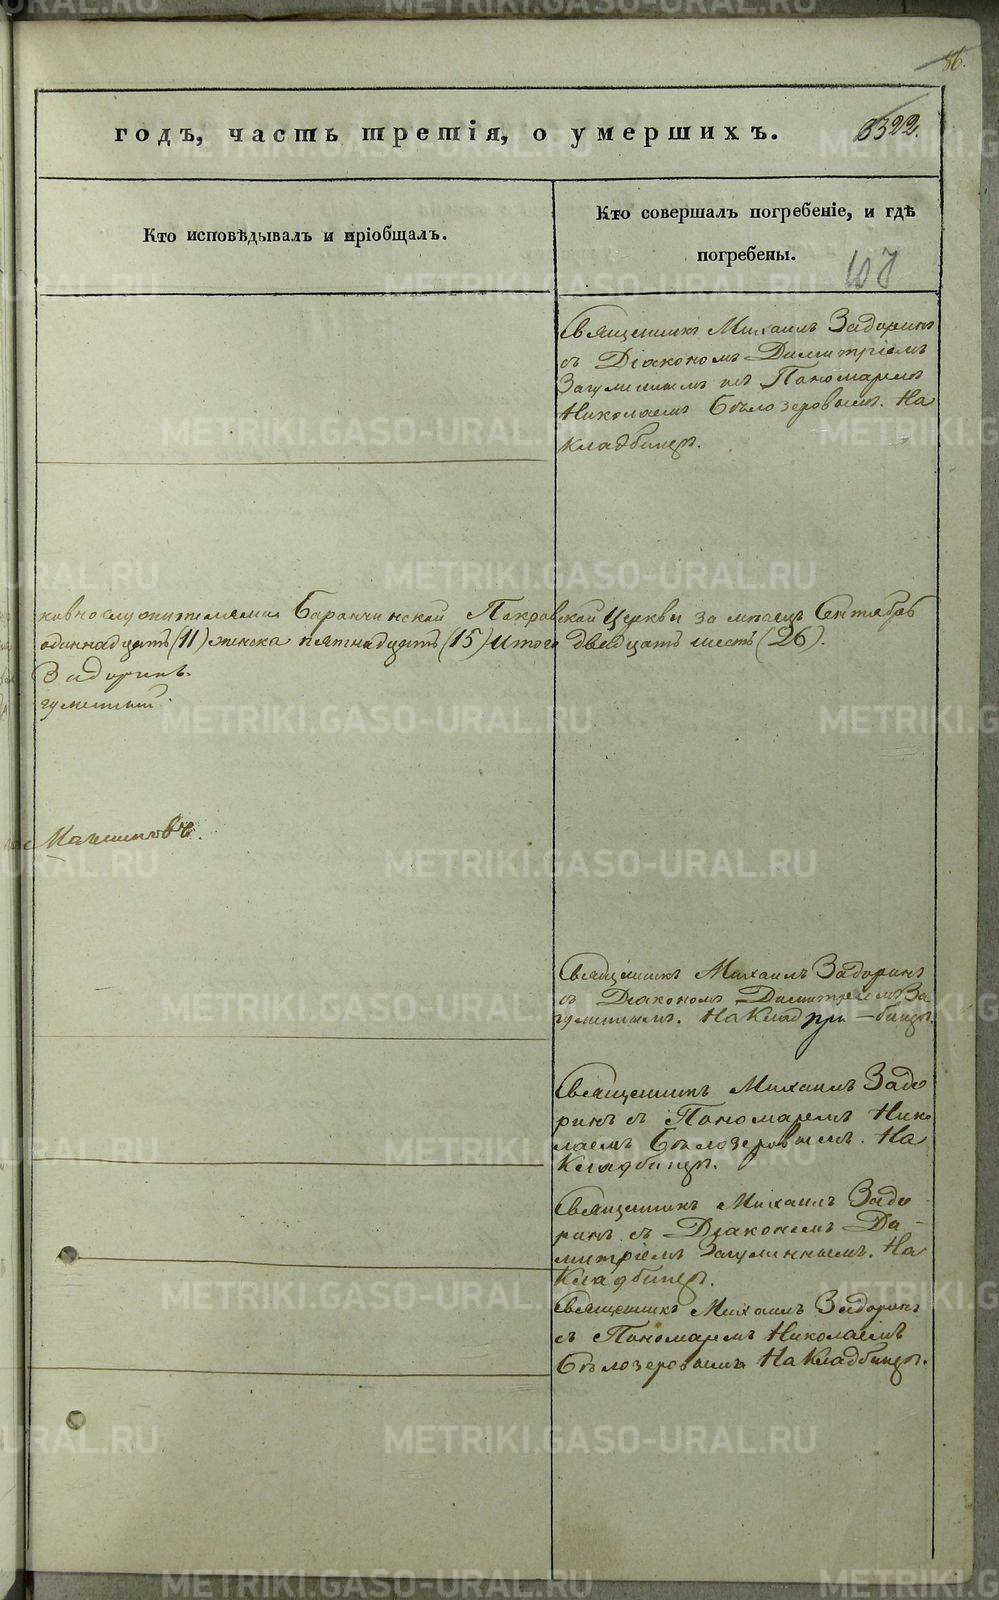 86.
годъ, часть третія, о умершихъ.
3322.
Кто исповѣдывалъ и пріобщалъ.
Кто совершалъ погребеніе, и гдѣ
погребены.
Священникъ Михаилъ Задоринъ
съ Діакономъ Димитріемъ
Загуменнымъ и Пономаремъ
Николаемъ Бѣлозеровымъ. На
кладбищѣ.
ковнослужителями Баранчинской Покровской Церкви за мѣсяцъ Сентябрь
одиннадцать (11) женска пятнадцать (15) Итого двадцать шесть (26).
Задоринъ.
гуменный.
Священникъ Михаилъ Задоринъ
съ Діакономъ Димитріемъ За
гуменнымъ. На Клад при - бищѣ.
Священникъ Михаилъ Задо
ринъ съ Пономаремъ Нико
лаемъ Бѣлозеровымъ. На
Кладбищѣ.
Священникъ Михаилъ Задо
ринъ съ Діакономъ Ди-
митріемъ Загуменнымъ. На
Кладбищѣ.
Священникъ Михаилъ Задоринъ
съ Пономаремъ Николаемъ
Бѣлозеровымъ На Кладбищѣ.
METRIKI.GASO-URAL.RU